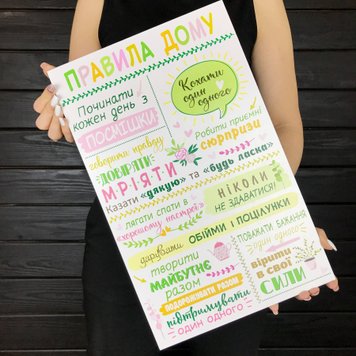 ПРАВИЛА ДОМУ
Починати
кожен день з
ПОСМІШКИ
Кохати
один
одного
говорити правду
ПОВІРИТИ
МРІЯТИ
Робити приємні
сюрпризи
Казати «дякую» та «будь ласка»
лягати спати в
хорошому настрої
НІКОЛИ
НЕ ЗДАВАТИСЯ!
дарувати ОБІЙМИ І ПОЦІЛУНКИ
творити
МАЙБУТНЄ
разом
ПОДОРОЖУВАТИ РАЗОМ
підтримувати
один одного
ПОВАЖАТИ БАЖАННЯ
один одного
вірити
в свої
СИЛИ